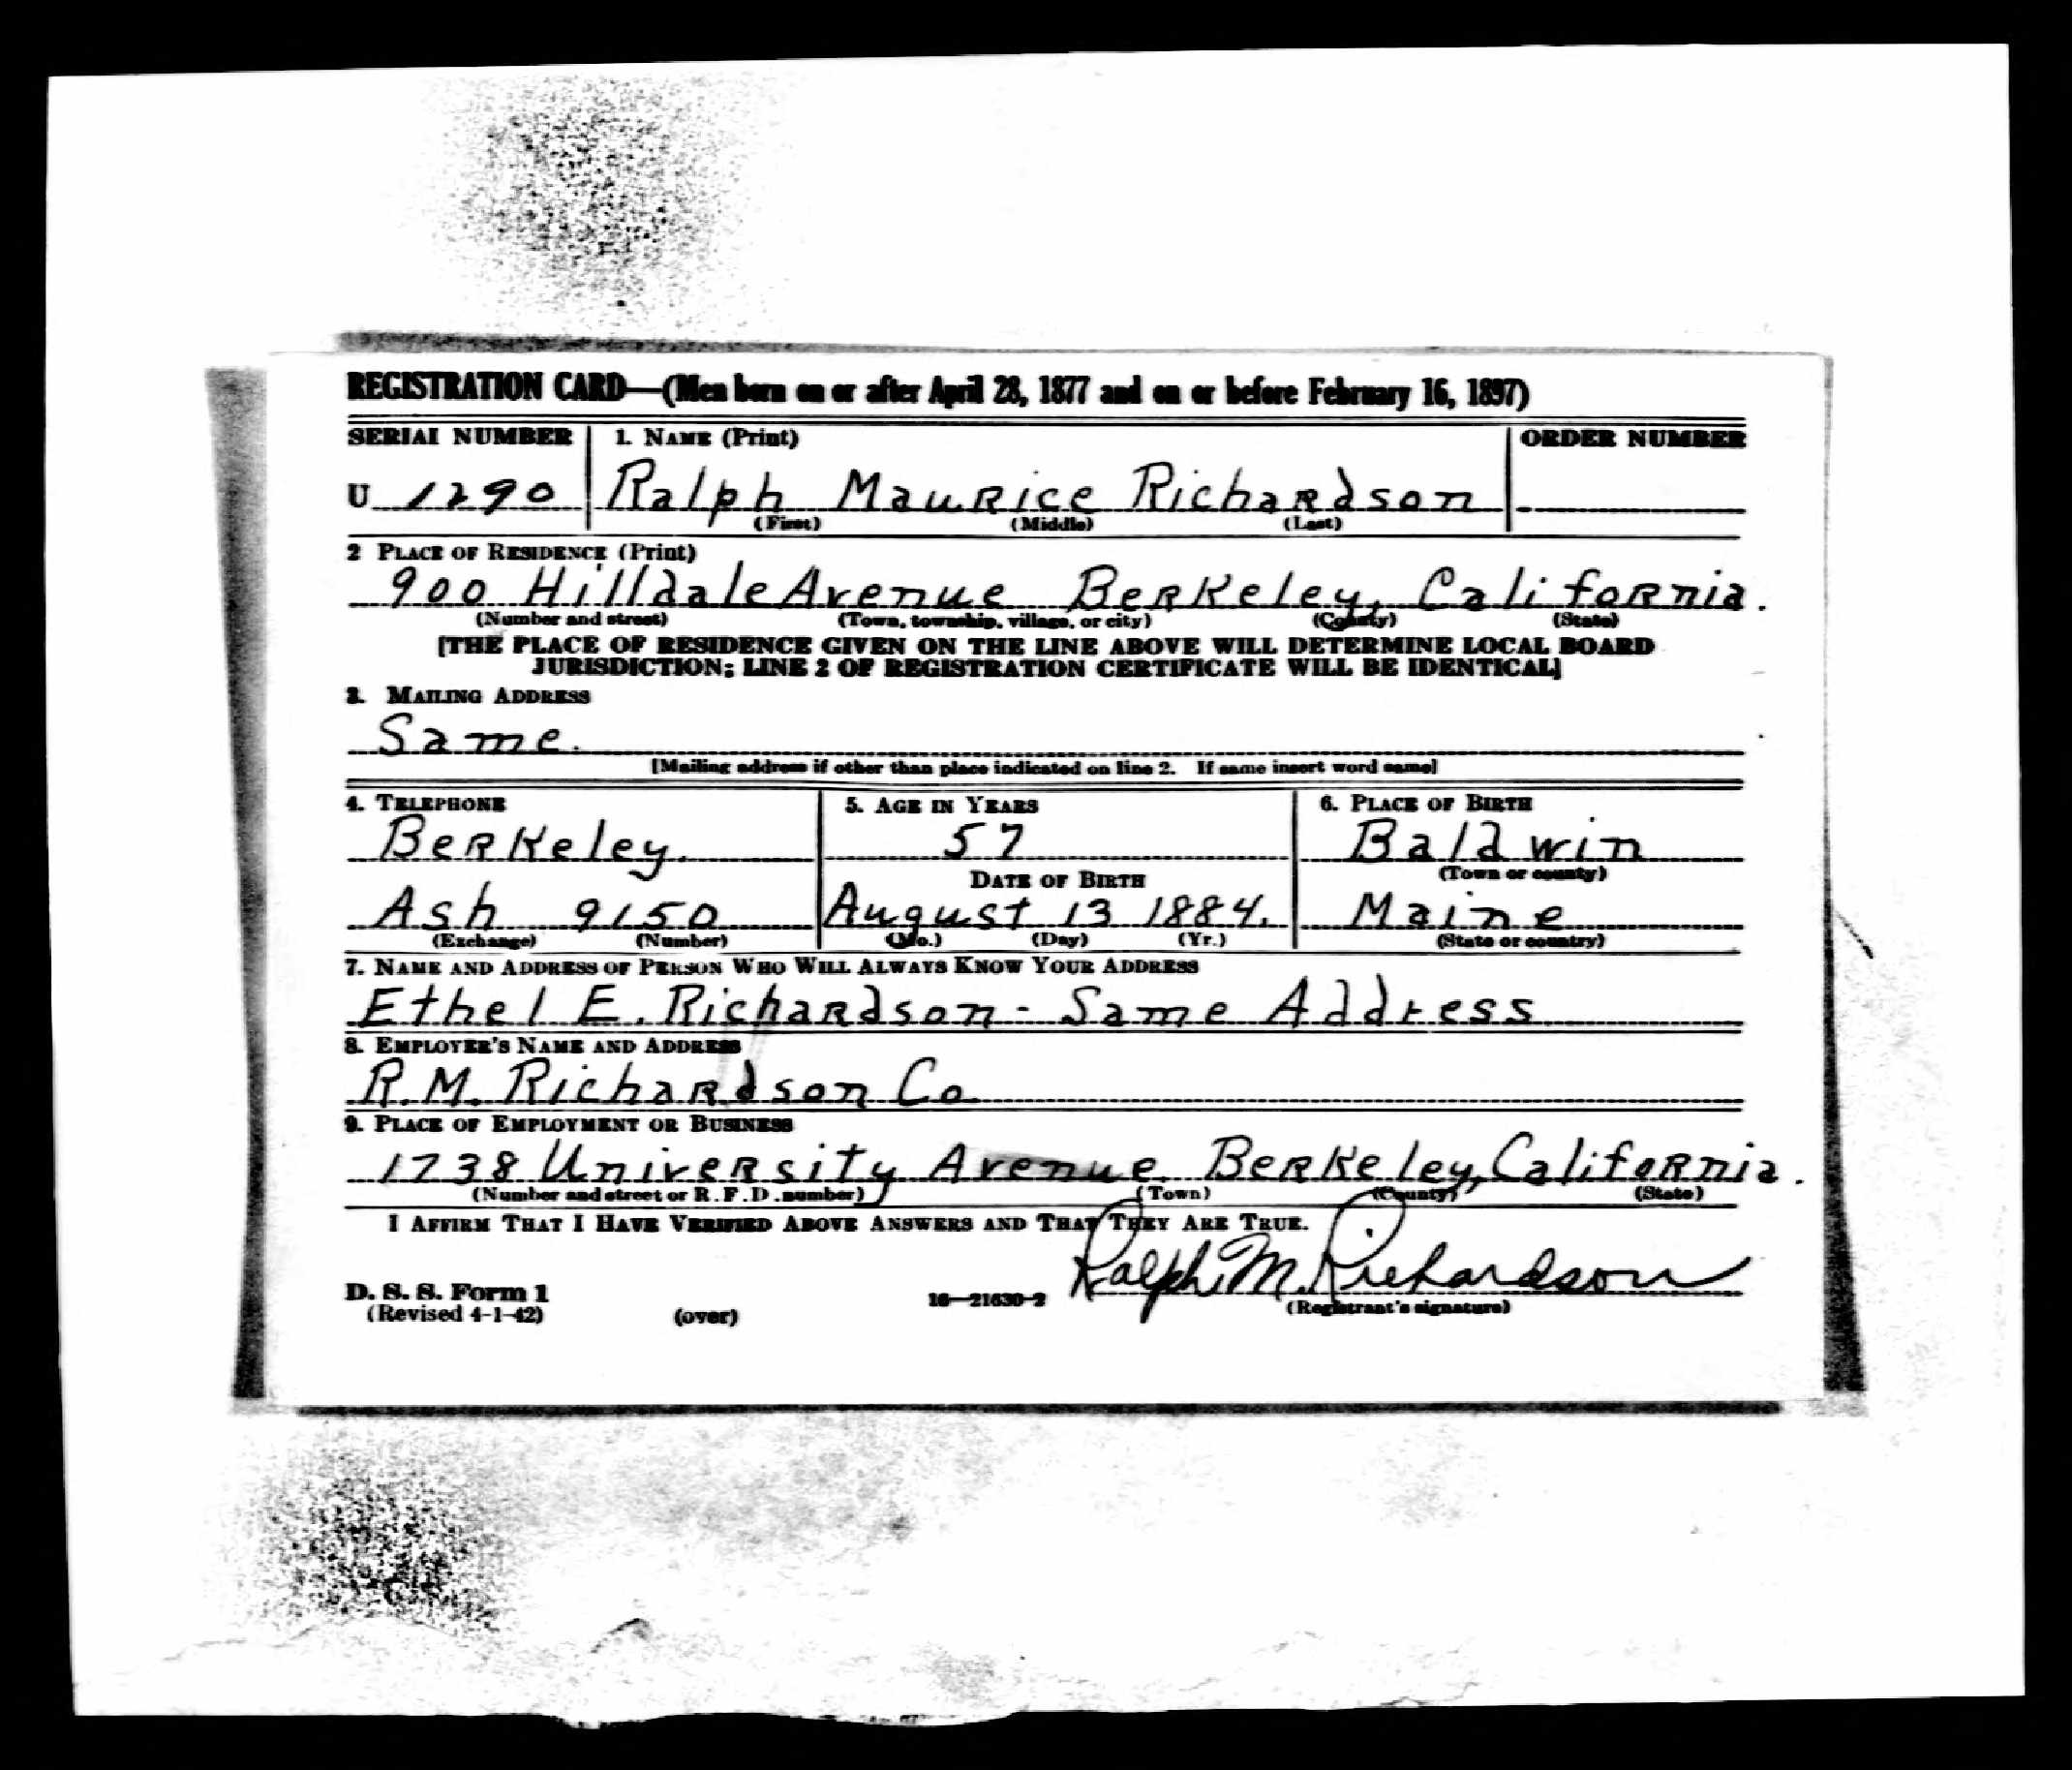 REGISTRATION CARD—(Men born on or after April 28, 1877 and on or before February 16, 1897)
SERIAL NUMBER 1. NAME (Print) ORDER NUMBER
U 1290 Ralph Maurice Richardson
(First) (Middle) (Last)
2 PLACE OF RESIDENCE (Print)
900 Hilldale Avenue Berkeley, California.
(Number and street) (Town, township, village, or city) (County) (State)
[THE PLACE OF RESIDENCE GIVEN ON THE LINE ABOVE WILL DETERMINE LOCAL BOARD
JURISDICTION; LINE 2 OF REGISTRATION CERTIFICATE WILL BE IDENTICAL]
3. MAILING ADDRESS
Same.
[Mailing address if other than place indicated on line 2. If same insert word same]
4. TELEPHONE 5. AGE IN YEARS 6. PLACE OF BIRTH
Berkeley. 57 Baldwin
DATE OF BIRTH (Town or county)
Ash 9150 August 13 1884. Maine
(Exchange) (Number) (Mo.) (Day) (Yr.) (State or country)
7. NAME AND ADDRESS OF PERSON WHO WILL ALWAYS KNOW YOUR ADDRESS
Ethel E. Richardson - Same Address
8. EMPLOYER'S NAME AND ADDRESS
R.M. Richardson Co.
9. PLACE OF EMPLOYMENT OR BUSINESS
1738 University Avenue Berkeley, California.
(Number and street or R. F. D. number) (Town) (County) (State)
I AFFIRM THAT I HAVE VERIFIED ABOVE ANSWERS AND THAT THEY ARE TRUE.
Ralph M. Richardson
D. S. S. Form 1
(Revised 4-1-42) (over) 16—21630-2 (Registrant's signature)